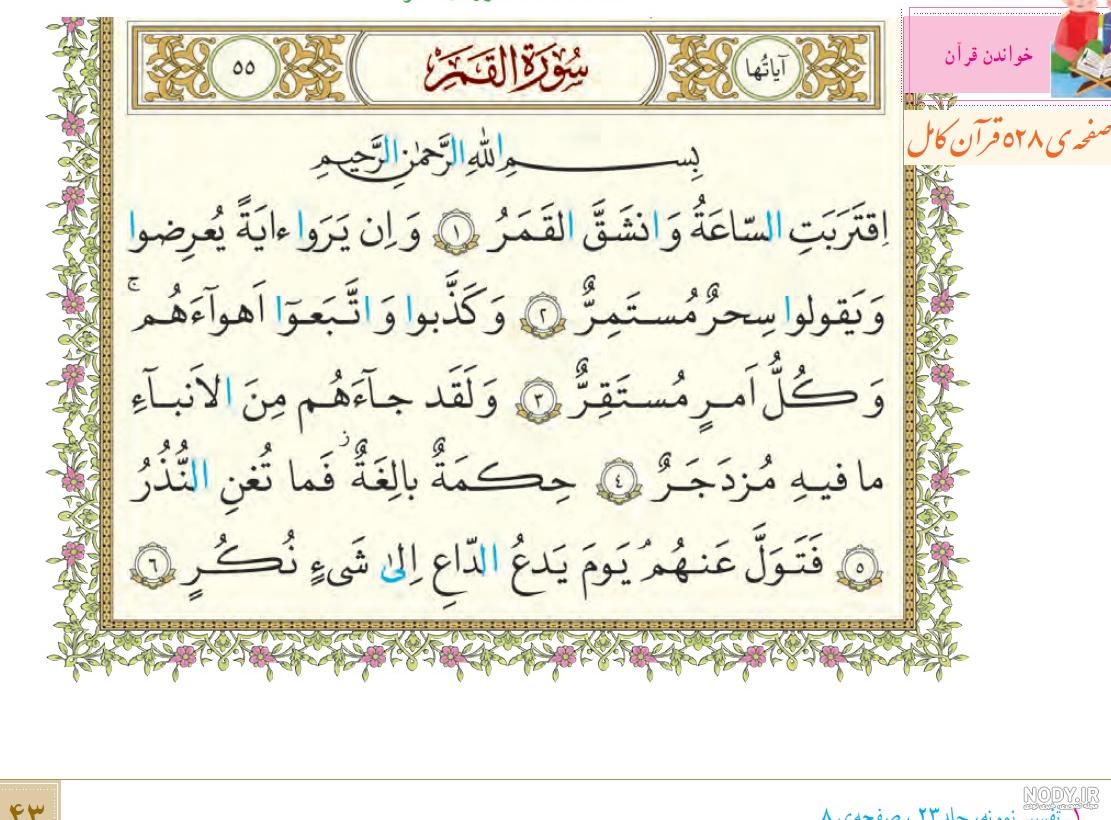 خواندن قرآن
صفحه‌ی ۵۲۸ قرآن کامل
آیاتُها
سُورَةُ القَمَرِ
۵۵
بِسمِ اللّٰهِ الرَّحمٰنِ الرَّحیمِ
اِقتَرَبَتِ السّاعَةُ وَ انشَقَّ القَمَرُ ۱ وَ اِن یَرَوا ءایَةً یُعرِضوا
وَ یَقولوا سِحرٌ مُستَمِرٌّ ۲ وَ کَذَّبوا وَ اتَّبَعوٓا اَهوآءَهُم ۚ
وَ کُلُّ اَمرٍ مُستَقِرٌّ ۳ وَ لَقَد جآءَهُم مِنَ الاَنبـآءِ
ما فیهِ مُزدَجَرٌ ٤ حِکمَةٌ بالِغَةٌ ز فَما تُغنِ النُّذُرُ
۵ فَتَوَلَّ عَنهُم ۘ یَومَ یَدعُ الدّاعِ اِلیٰ شَیءٍ نُکُرٍ ٦
۱ـ تفسیر نمونه، جلد ۲۳، صفحه‌ی ۸
۴۳
NODY.IR